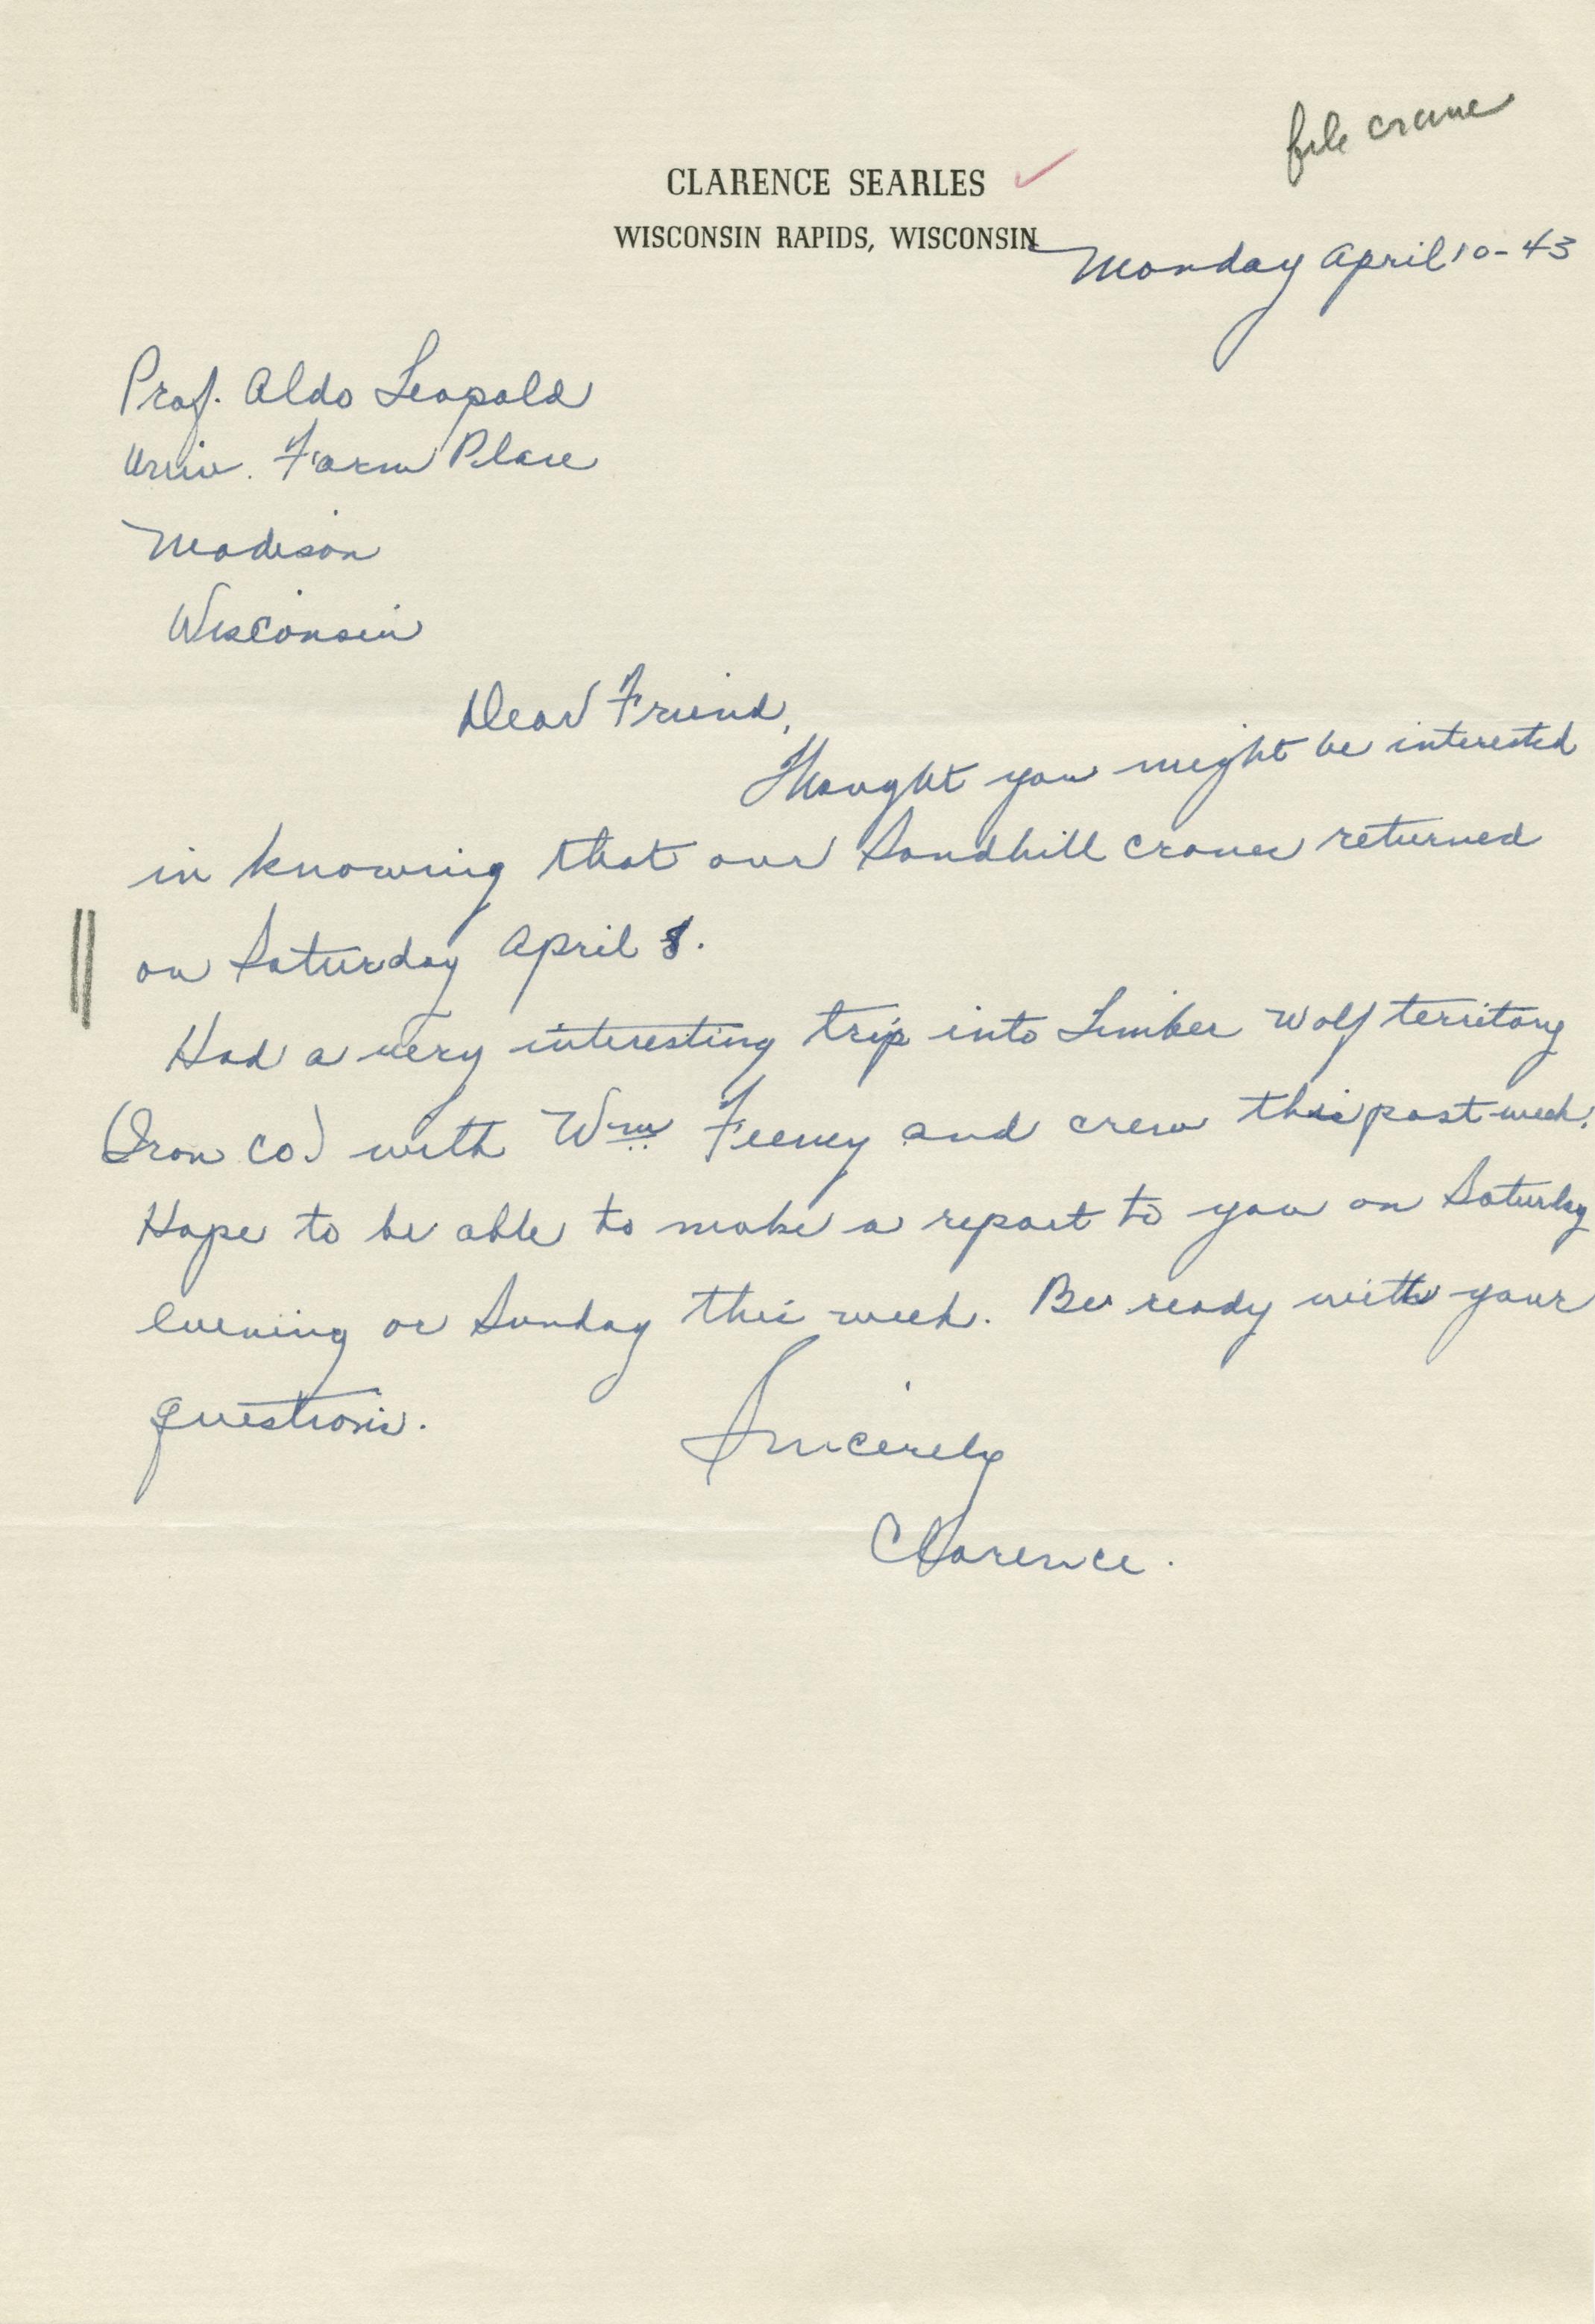 file crane
CLARENCE SEARLES
WISCONSIN RAPIDS, WISCONSIN
Monday April 10-43
Prof. Aldo Leopold
Univ. Farm Place
Madison
Wisconsin
Dear Friend,
Thought you might be interested
in knowing that our Sandhill cranes returned
on Saturday April 8.
Had a very interesting trip into Timber Wolf territory
(Iron Co.) with Wm Feeney and crew this past week.
Hope to be able to make a report to you on Saturday
evening or Sunday this week. Be ready with your
questions.
Sincerely
Clarence.